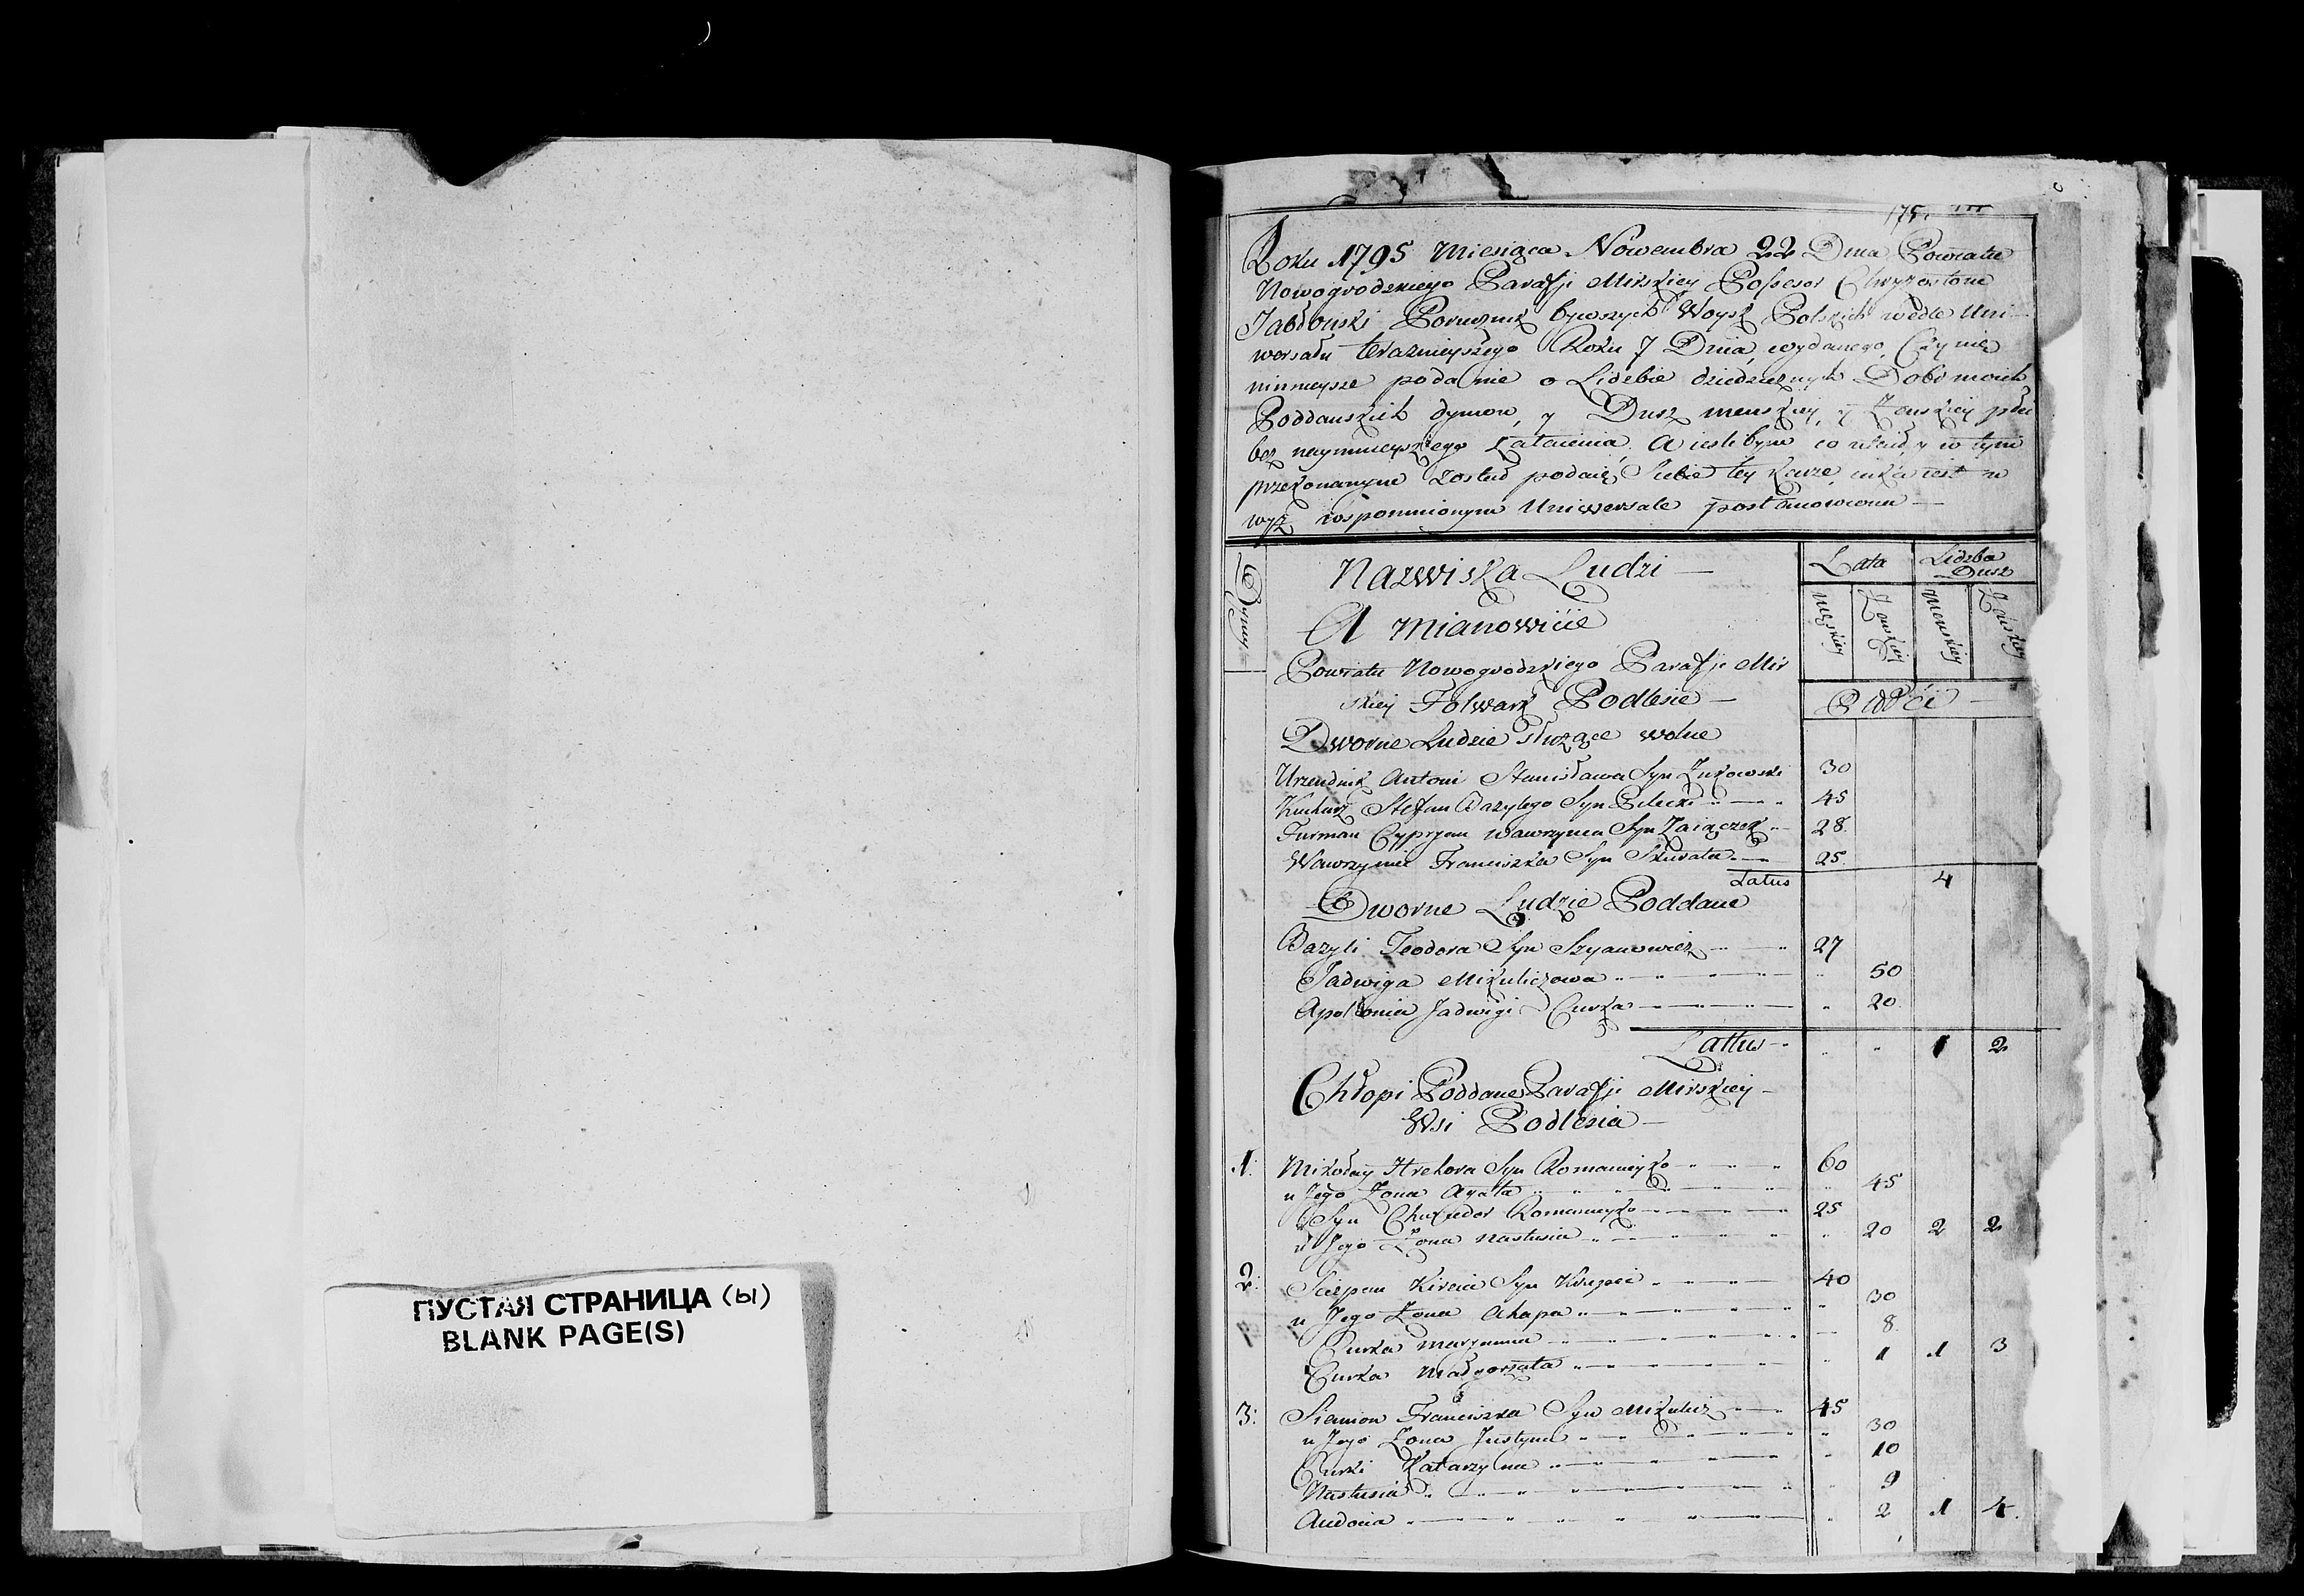 ПУСТАЯ СТРАНИЦА (ы)
BLANK PAGE(S)
175.
Roku 1795 Miesiąca Nowembra 22 Dnia Powiatu
Nowogrodzkiego Parafji Mirskiey Possesor Chryzontom
Jabłonski Porucznik bywszych Woysk Polskich wedle Uni-
wersału terazneyszego Roku 7 Dnia wydanego, Czynię
ninieysze podanie o Lidzbie dziedzicznych Dobr moich
Poddanskich dymow, y Dusz menskiey, y Zenskiey płci
bez naymnieyszego zataienia. A iesli bym co utaił, y w tym
przekonanym został podaię Siebie tey karze, iaka iest w
wyż wspomnionym Uniwersale postanowiona —
Dymy
Nazwiska Ludzi —
A mianowicie
Lata
Lidzba Dusz
męskiey
Zenskiey
Menskiey
Zenskiey
Powiatu Nowogrodzkiego Parafji Mir
skiey Folwark Podlesie —
Płci —
Dworne Ludzie służące wolne
Urzendnik Antoni Stanisława Syn Żukowski 30
Kucharz Stefan Bazylego Syn Bilecki 45
Furman Cyprjan Wawrzynca Syn Zaiączek 28
Wawrzyniec Franciszka Syn Skurata 25
Latus 4
Dworne Ludzie Poddane
Bazyli Teodora Syn Szyanowicz 27
Jadwiga Mikuliczowa 50
Apolonia Jadwigi Curka 20
Lattus 1 2
Chłopi Poddane Parafji Mirskiey —
Wsi Podlesia —
1. Mikołay Hrehora Syn Romaneyko 60
u Jego Zona Agata 45
Syn Chwiedor Romaneyko 25
u Jego Zona Nastusia 20 2 2
2: Sciepan Kiryia Syn 40
u Jego Zona Ahapa 30
Curka Maryanna 8
Curka Małgorzata 1 1 3
3: Siemion Franciszka Syn Mikulicz 45
u Jego Zona Justyna 30
Curki Katarzyna 10
Nastusia 9
Audocia 2 1 4.